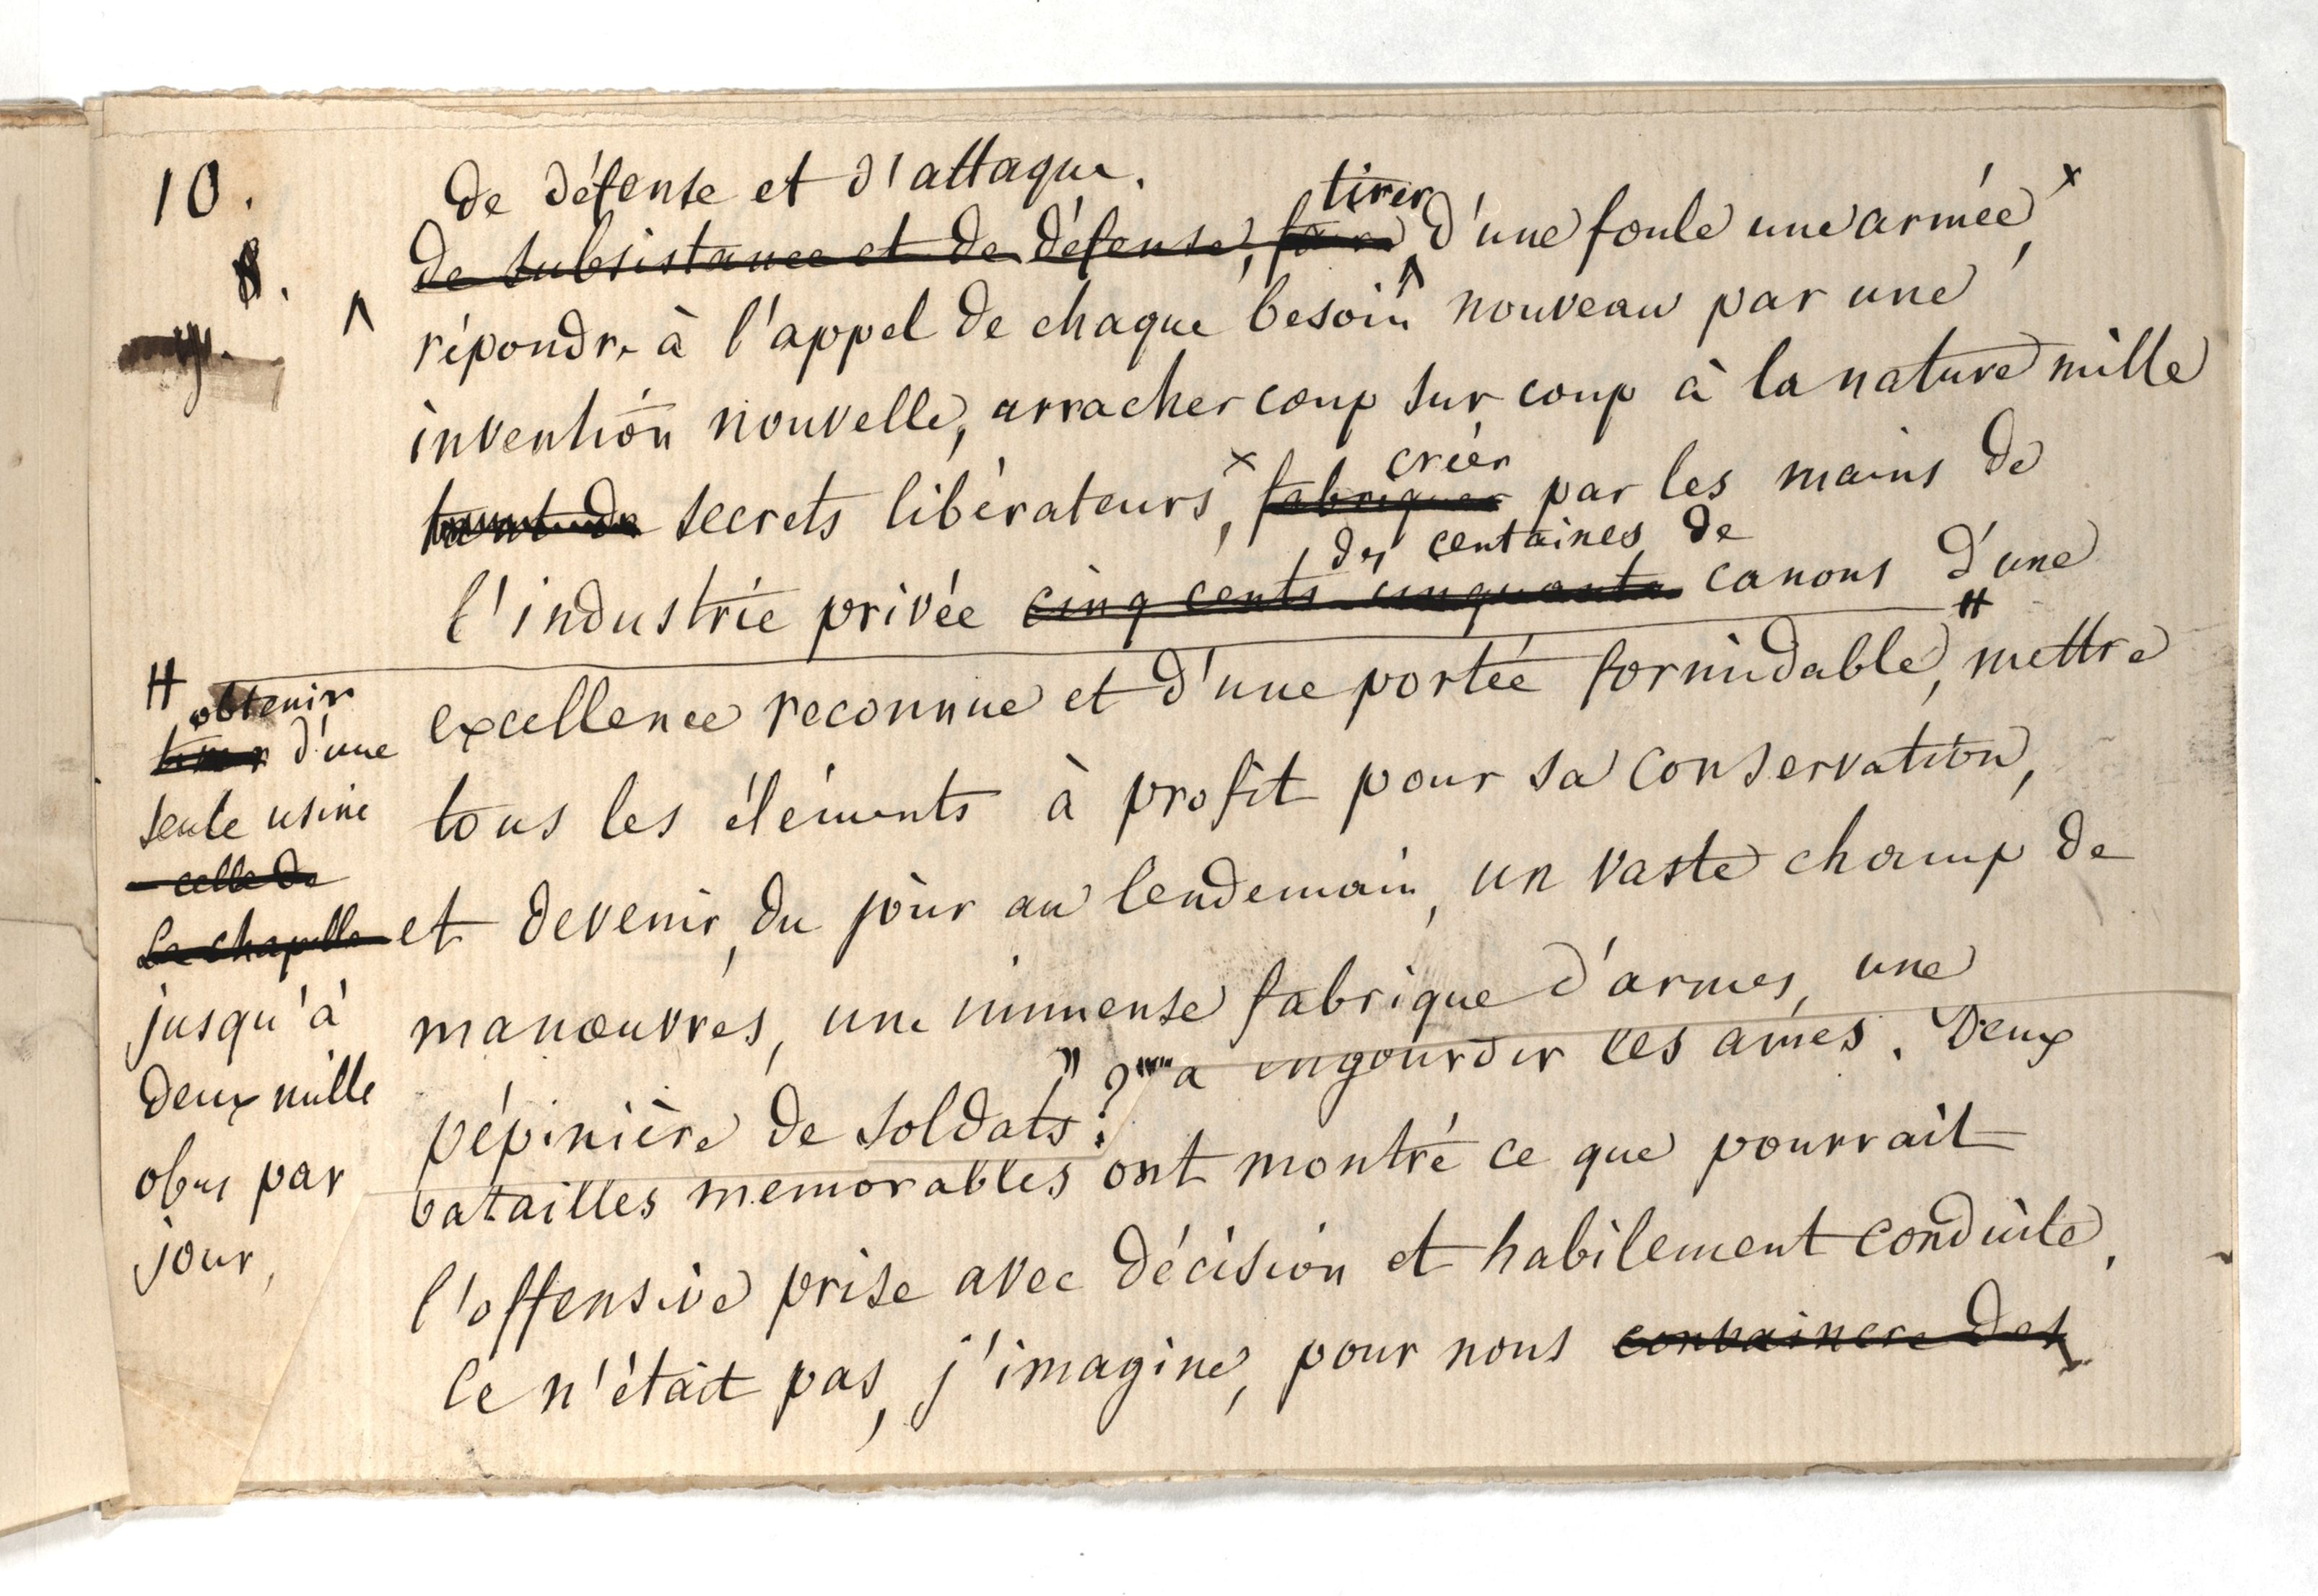 10.
8.
de défense et d'attaque.
tirer
de subsistance et de défense, faire d'une foule une armée,
répondre à l'appel de chaque besoin nouveau par une
invention nouvelle, arracher coup sur coup à la nature mille
créer
secrets libérateurs, fabriquer par les mains de
des centaines de
l'industrie privée cinq cents cinquante canons d'une
excellence reconnue et d'une portée formidable, mettre
tous les éléments à profit pour sa conservation,
et devenir, du jour au lendemain, un vaste champ de
manœuvres, une immense fabrique d'armes, une
pépinière de soldats?
a engourdir les âmes. Deux
batailles mémorables ont montré ce que pourrait
l'offensive prise avec décision et habilement conduite.
Ce n'était pas, j'imagine, pour nous convaincre des
obtenir
tirer d'une
seule usine
— celle de
La chapelle
jusqu'à
deux mille
obus par
jour,